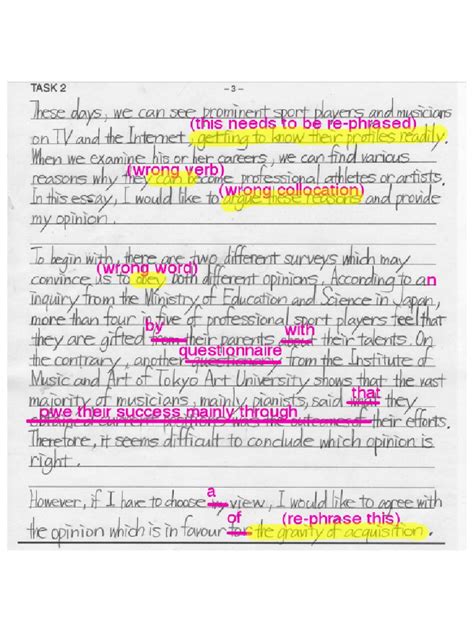 TASK 2
-3-
These days, we can see prominent sport players and musicians
(this needs to be re-phrased)
on TV and the Internet, getting to know their profiles readily.
When we examine his or her careers, we can find various
(wrong verb)
reasons why they can become professional athletes or artists.
(wrong collocation)
In this essay, I would like to argue these reasons and provide
my opinion.
To begin with, there are two different surveys which may
(wrong word)
convince us to obey both different opinions. According to an
inquiry from the Ministry of Education and Science in Japan,
more than four in five of professional sport players feel that
by with
they are gifted from their parents about their talents. On
questionnaire
the contrary, another from the Institute of
Music and Art of Tokyo Art University shows that the vast
that
majority of musicians, mainly, pianists, said they
owe their success mainly through
current positions was the outcomes of their efforts.
Therefore, it seems difficult to conclude which opinion is
right.
a
However, if I have to choose my view, I would like to agree with
of (re-phrase this)
the opinion which is in favour for the gravity of acquisition.